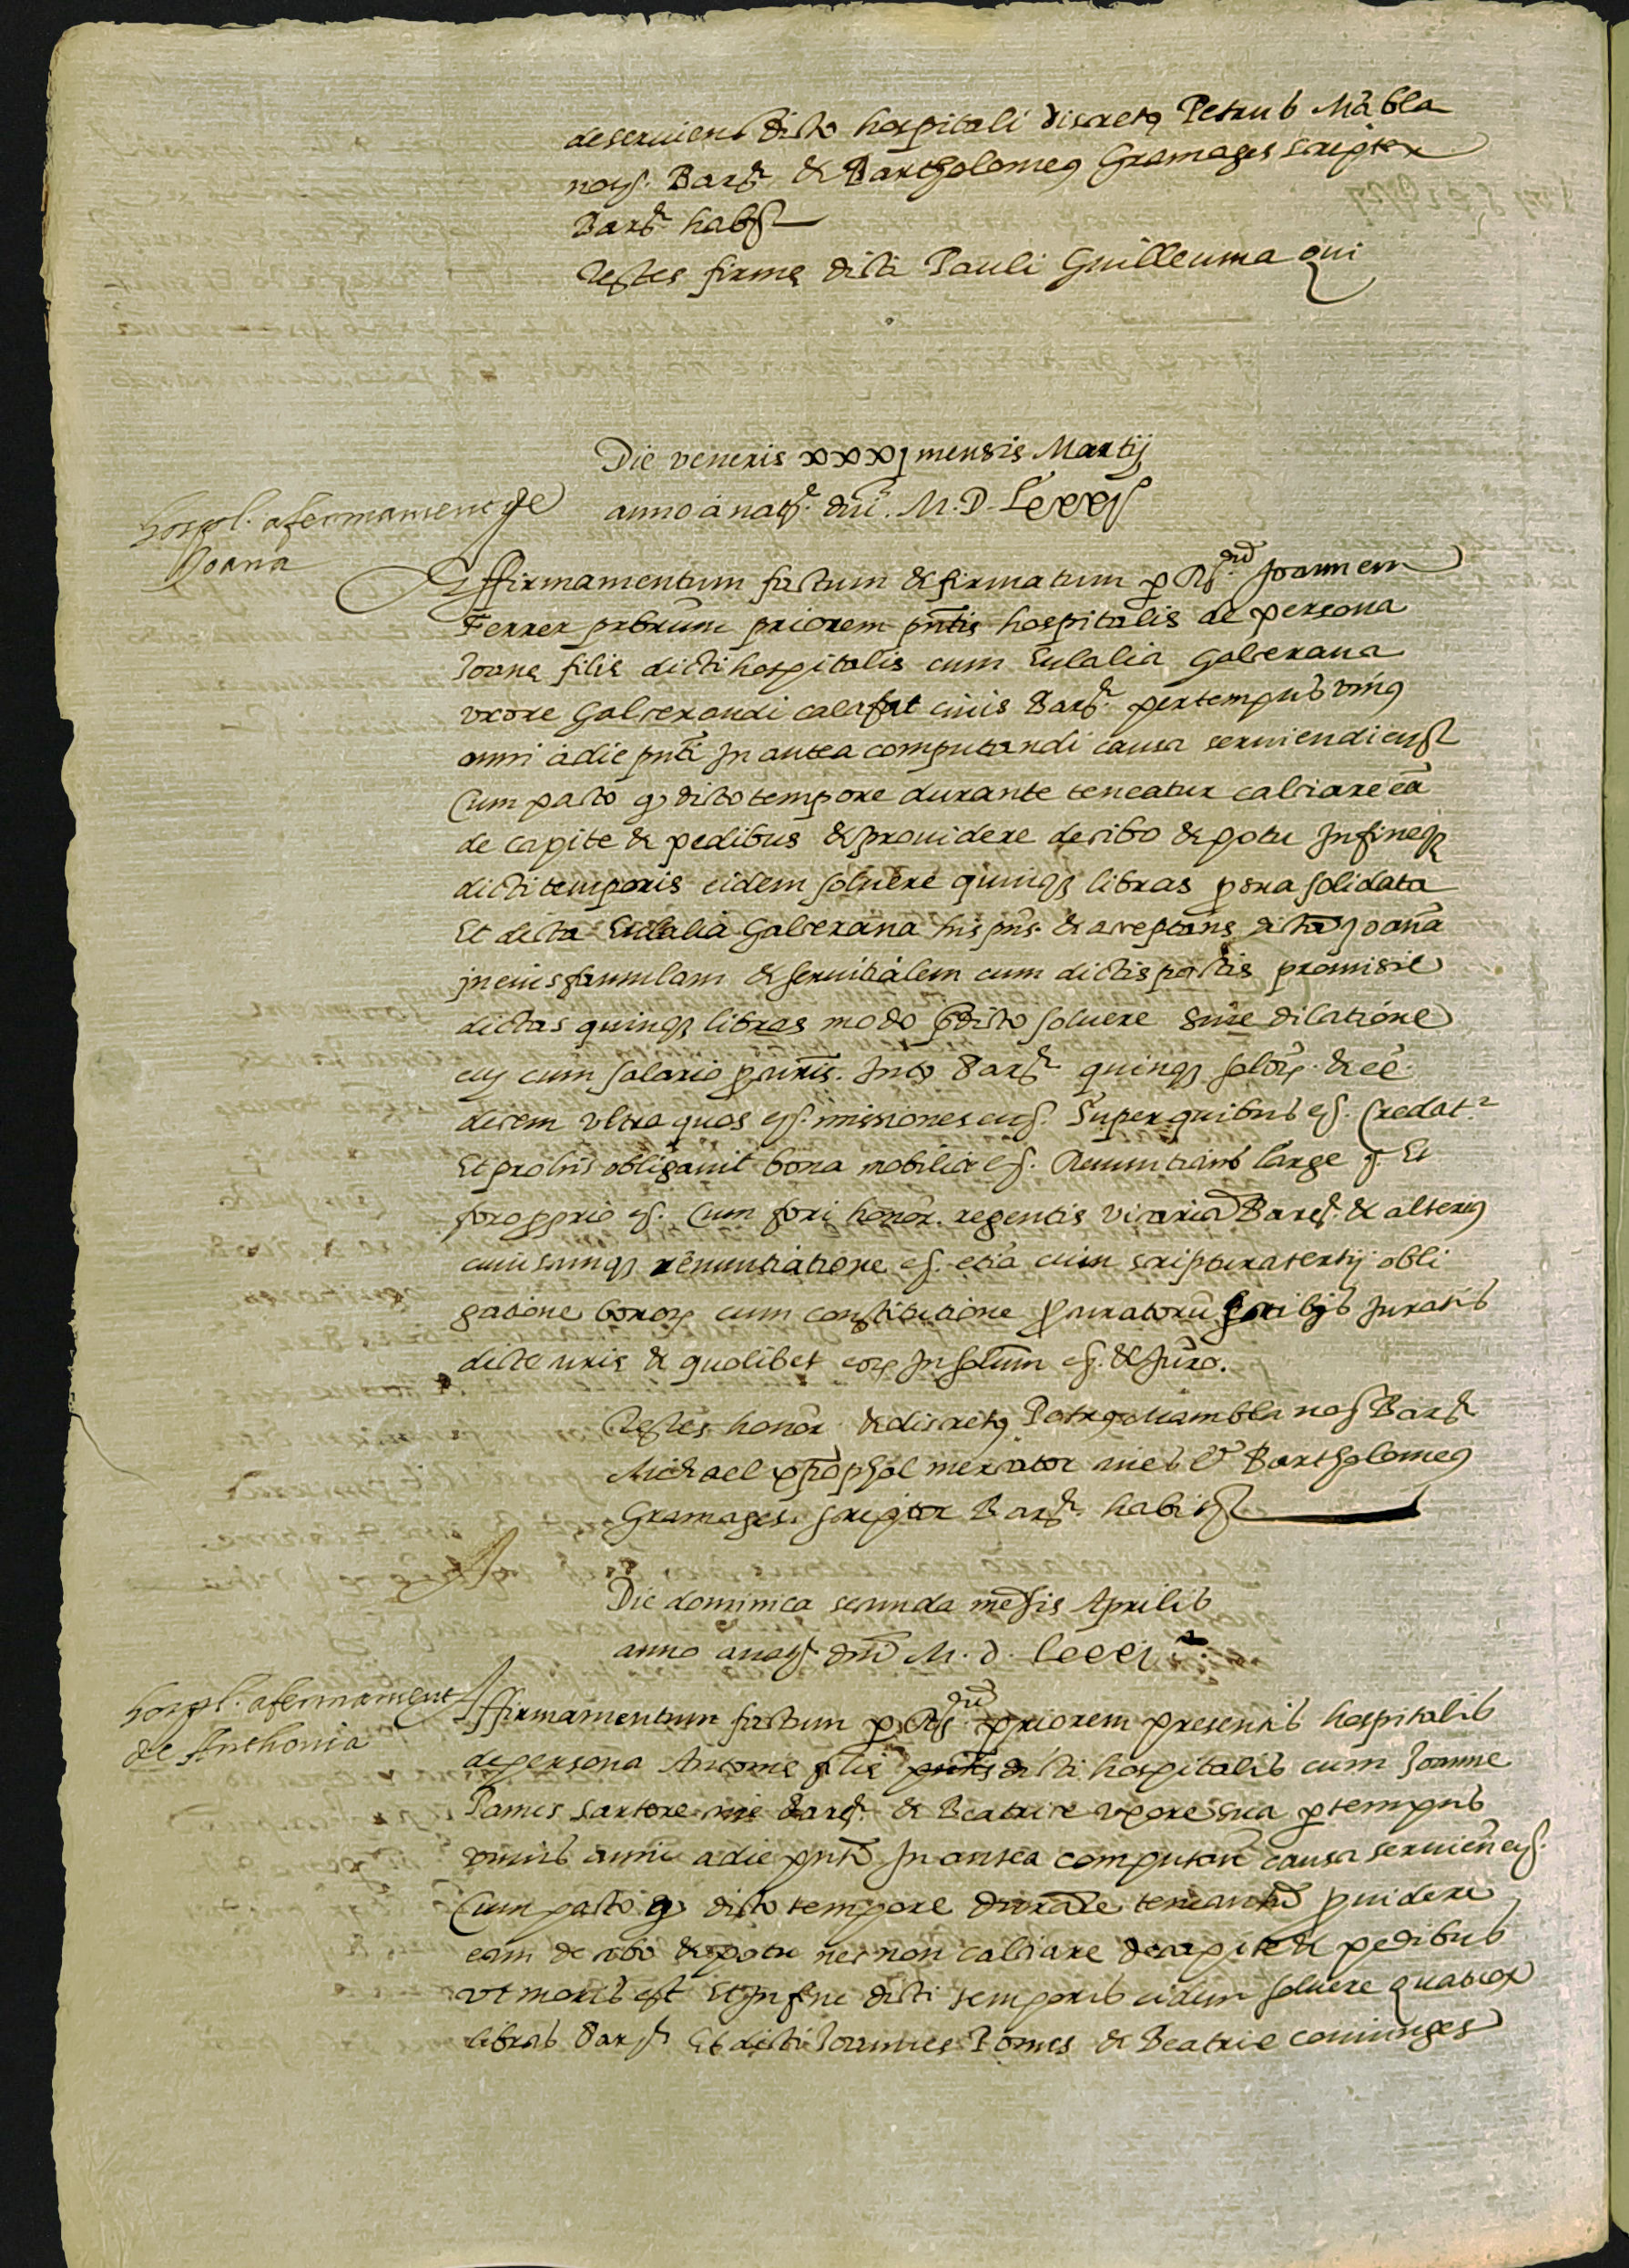 deseruiens dicto hospitali discretꝯ Petrus Mābla
noṭ. Barꝭ & Bartholomeꝯ Gramages scriptor
Barꝭ habꝭ
Testes firmę dicti Pauli Guilleuma qui
Die veneris xxxj mensis Martij
anno à natꝭ. dñi. M. D. Lxxij
hospl. afermament de
Joana
Affirmamentum factum & firmatum p Rꝭ.dũ Joannem
Ferrer prbrũm priorem pñtis hospitalis de persona
Joanę filię dicti hospitalis cum Eulalia Galserana
vxore Galserandi calafat ciuis Barꝭ. per tempus vniꝯ
anni à die pñti in antea computandi causa seruiendi eiꝭ
Cum pacto qꝫ dicto tempore durante teneatur calsiare eā
de capite & pedibus & prouidere de cibo & potu In fineqꝫ
dicti temporis eidem soluere quinqꝫ libras p sua solidata
Et dicta Eulalia Galserana his pñs & acceptans dictā Joanā
in eius famulam & seruitialem cum dictis pactis promisit
dictas quinqꝫ libras modo p̄dicto soluere sine dilatione
cū cum salario p̄curis. Intꝰ Barꝭ quinqꝫ solꝭ. & eē.
decem vltra quos eꝭ. missiones eiꝭ. Super quibus eꝭ. Credatꝛ
Et pro his obligauit bona mobilia eꝭ. Renuntians large ꝭ. Et
foro p̱prio eꝭ. Cum fori honor. regentis vicariā Barꝭ. & alteriꝯ
cuiuscunqꝫ renuntiatione eꝭ. etiā cum scriptura tertij obli
gatione bonoꝝ cum constitutione p̱curatorũ Juratis
dicte curie & quolibet eoꝝ In solum eꝭ. & Juro.
Testes honor & discretꝯ Petrꝯ Mambla noꝭ Barꝭ
Michael mercator ciues & Bartholomeꝯ
Gramages scriptor Barꝭ habitꝭ
Die dominica secunda mēsis Aprilis
anno a natꝭ dñi M. D. Lxxij
hospl. afermament
de Anthonia
Affirmamentum factum p Rꝭ.dũ priorem presentis hospitalis
de persona Antonię filię dicti hospitalis cum Joanne
Pomes sartore ciue Barꝭ. & Beatrice vxore sua p tempus
vnius anni a die pñti In antea computañ causa seruieñ eꝭ.
Cum pacto qꝫ dicto tempore durāte teneantũ p̱uidere
eam de cibo & potu nec non calsiare de capite & pedibus
vt moris est Et in fine dicti temporis eidem soluere quatuor
libras Barꝭ Et dicti Joannes Pomes & Beatrix coniuges